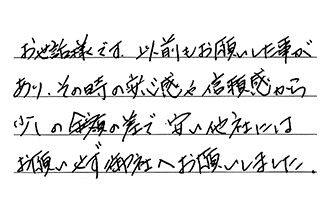 お世話様です。以前もお願いした事が
あり、その時の安心感や信頼感から
少しの金額の差で安い他社には
お願いせず御社へお願いしました。